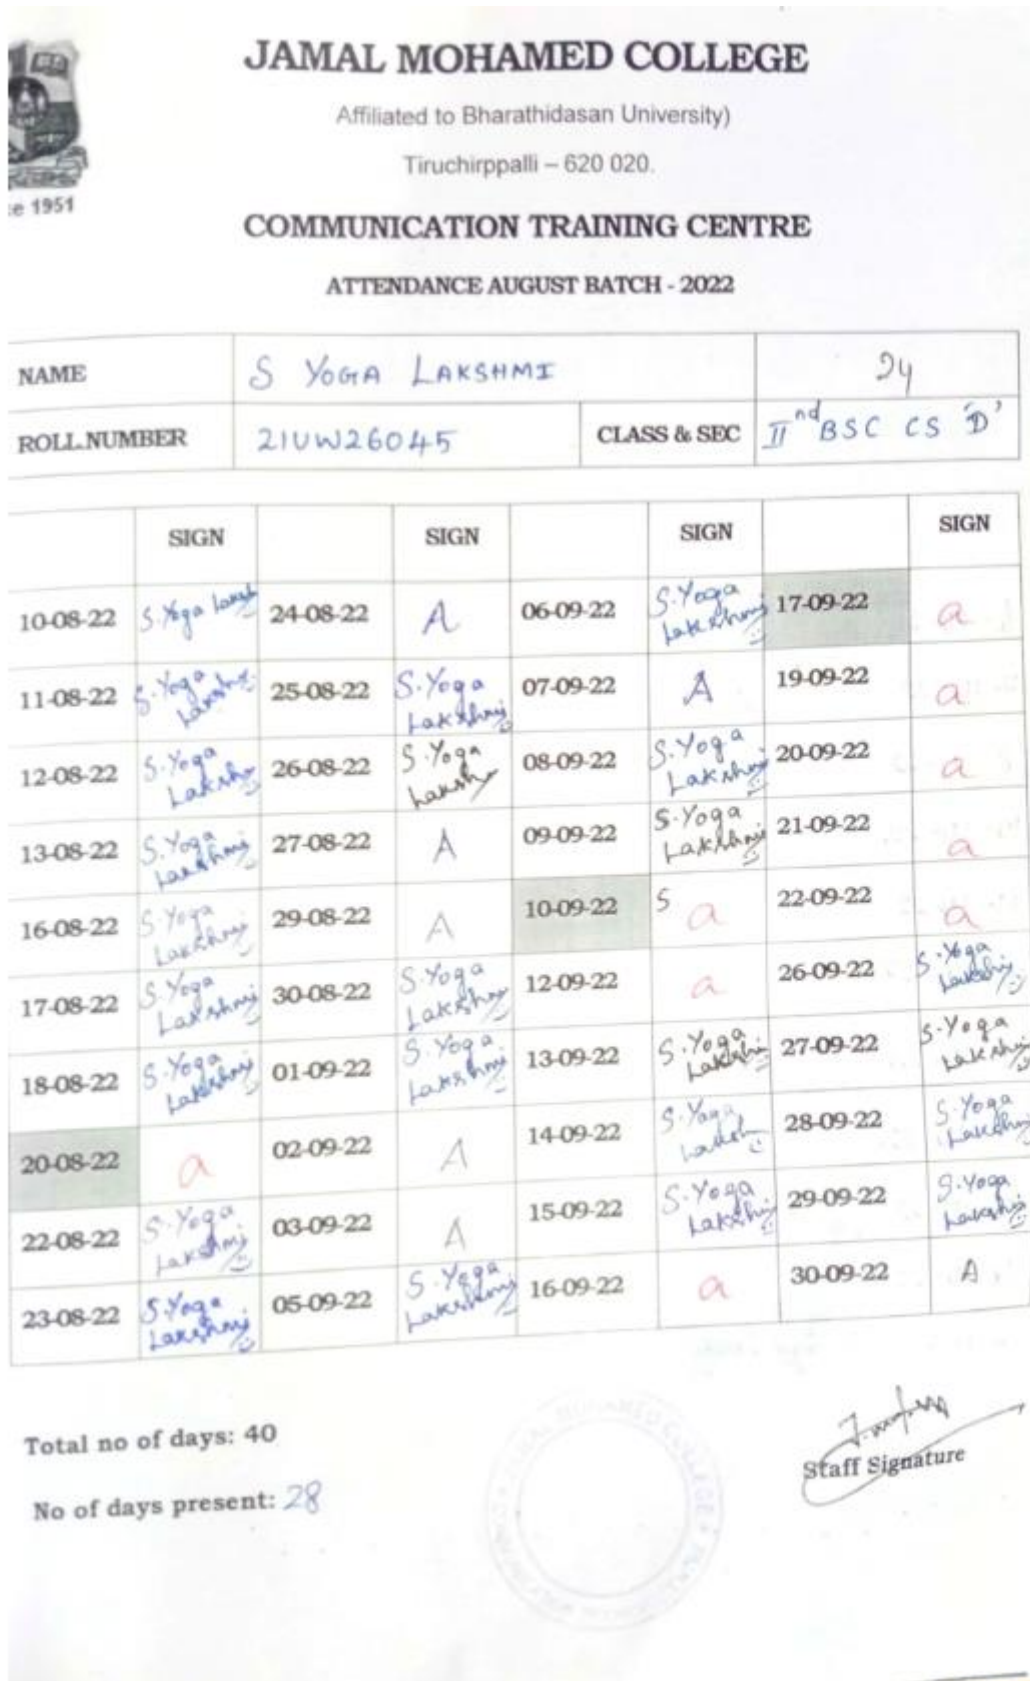 JAMAL MOHAMED COLLEGE
Affiliated to Bharathidasan University)
Tiruchirppalli – 620 020.
ce 1951
COMMUNICATION TRAINING CENTRE
ATTENDANCE AUGUST BATCH - 2022
NAME S YOGA LAKSHMI 24
ROLL.NUMBER 21UW26045 CLASS & SEC IInd BSC CS 'D'
SIGN SIGN SIGN SIGN
10-08-22 S.Yoga Laksh 24-08-22 A 06-09-22 S.Yoga Lakshmi 17-09-22 a
11-08-22 S.Yoga Lakshmi 25-08-22 S.Yoga Lakshmi 07-09-22 A 19-09-22 a
12-08-22 S.Yoga Lakshmi 26-08-22 S.Yoga Lakshmi 08-09-22 S.Yoga Lakshmi 20-09-22 a
13-08-22 S.Yoga Lakshmi 27-08-22 A 09-09-22 S.Yoga Lakshmi 21-09-22 a
16-08-22 S.Yoga Lakshmi 29-08-22 A 10-09-22 S a 22-09-22 a
17-08-22 S.Yoga Lakshmi 30-08-22 S.Yoga Lakshmi 12-09-22 a 26-09-22 S.Yoga Lakshmi
18-08-22 S.Yoga Lakshmi 01-09-22 S.Yoga Lakshmi 13-09-22 S.Yoga Lakshmi 27-09-22 S.Yoga Lakshmi
20-08-22 a 02-09-22 A 14-09-22 S.Yoga Lakshmi 28-09-22 S.Yoga Lakshmi
22-08-22 S.Yoga Lakshmi 03-09-22 A 15-09-22 S.Yoga Lakshmi 29-09-22 S.Yoga Lakshmi
23-08-22 S.Yoga Lakshmi 05-09-22 S.Yoga Lakshmi 16-09-22 a 30-09-22 A
Total no of days: 40
No of days present: 28
Staff Signature